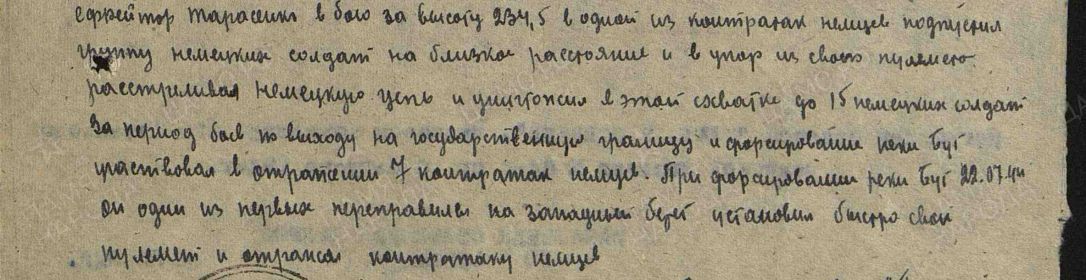 ефрейтор Тарасенко в бою за высоту 234,5 в одной из контратак немцев подпустил
группу немецких солдат на близкое расстояние и в упор из своего пулемета
расстреливал немецкую цепь и уничтожил в этой схватке до 15 немецких солдат
За период боев по выходу на государственную границу и форсирование реки Буг
участвовал в отражении 7 контратак немцев. При форсировании реки Буг 22.07.44
он один из первых переправился на западный берег установил быстро свой
пулемет и отражал контратаку немцев